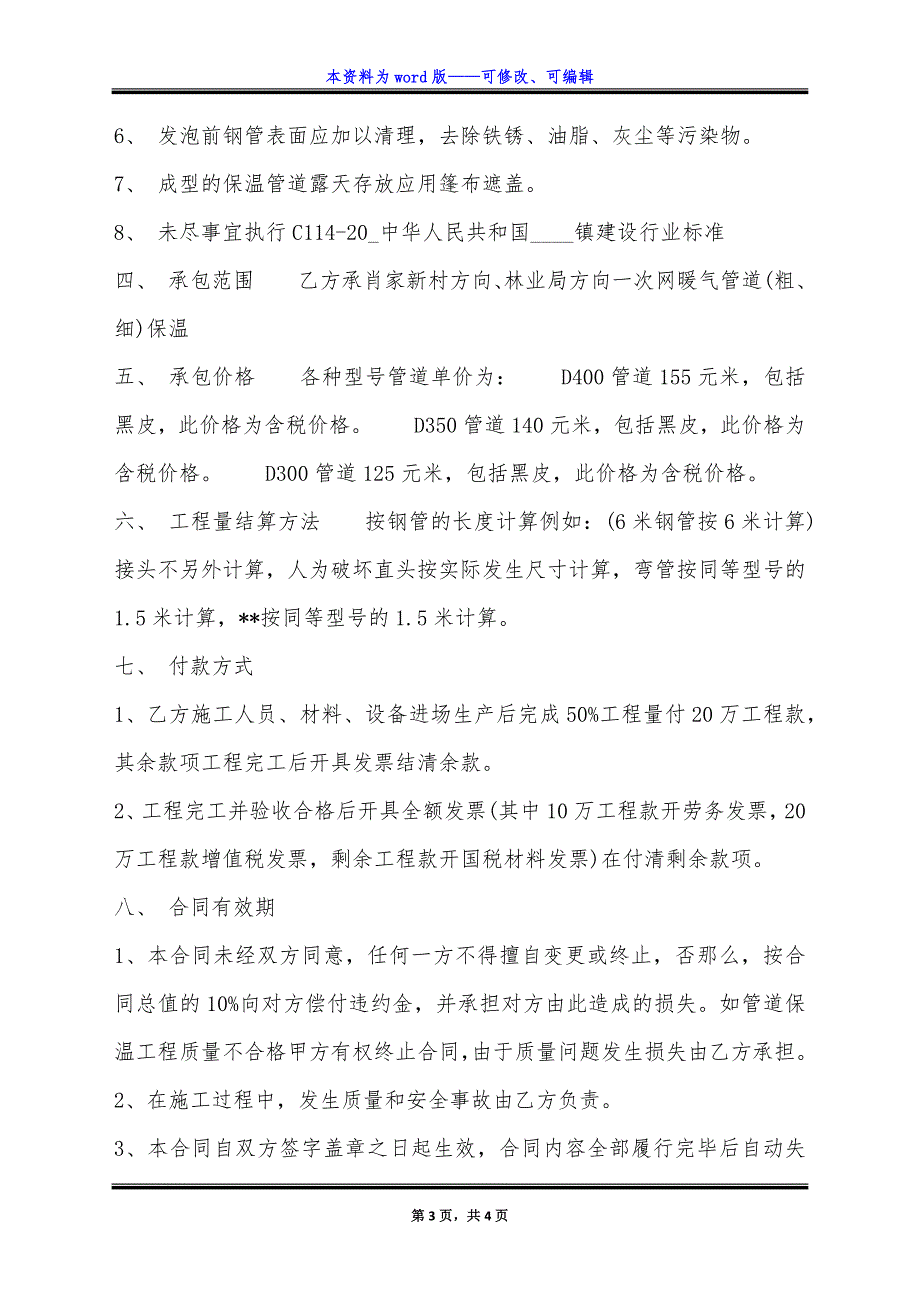 本资料为 word 版——可修改、可编辑
6、 发泡前钢管表面应加以清理，去除铁锈、油脂、灰尘等污染物。
7、 成型的保温管道露天存放应用篷布遮盖。
8、 未尽事宜执行 C114-20_中华人民共和国____镇建设行业标准
四、 承包范围　　乙方承肖家新村方向、林业局方向一次网暖气管道(粗、
细)保温
五、 承包价格　　各种型号管道单价为：　　D400 管道 155 元米，包括
黑皮，此价格为含税价格。　　D350 管道 140 元米，包括黑皮，此价格为
含税价格。　　D300 管道 125 元米，包括黑皮，此价格为含税价格。
六、 工程量结算方法　　按钢管的长度计算例如：(6 米钢管按 6 米计算)
接头不另外计算，人为破坏直头按实际发生尺寸计算，弯管按同等型号的
1.5 米计算，**按同等型号的 1.5 米计算。
七、 付款方式
1、乙方施工人员、材料、设备进场生产后完成 50%工程量付 20 万工程款，
其余款项工程完工后开具发票结清余款。
2、工程完工并验收合格后开具全额发票(其中 10 万工程款开劳务发票，20
万工程款增值税发票，剩余工程款开国税材料发票)在付清剩余款项。
八、 合同有效期
1、本合同未经双方同意，任何一方不得擅自变更或终止，否那么，按合
同总值的 10%向对方偿付违约金，并承担对方由此造成的损失。如管道保
温工程质量不合格甲方有权终止合同，由于质量问题发生损失由乙方承担。
2、在施工过程中，发生质量和安全事故由乙方负责。
3、本合同自双方签字盖章之日起生效，合同内容全部履行完毕后自动失
第 3 页，共 4 页